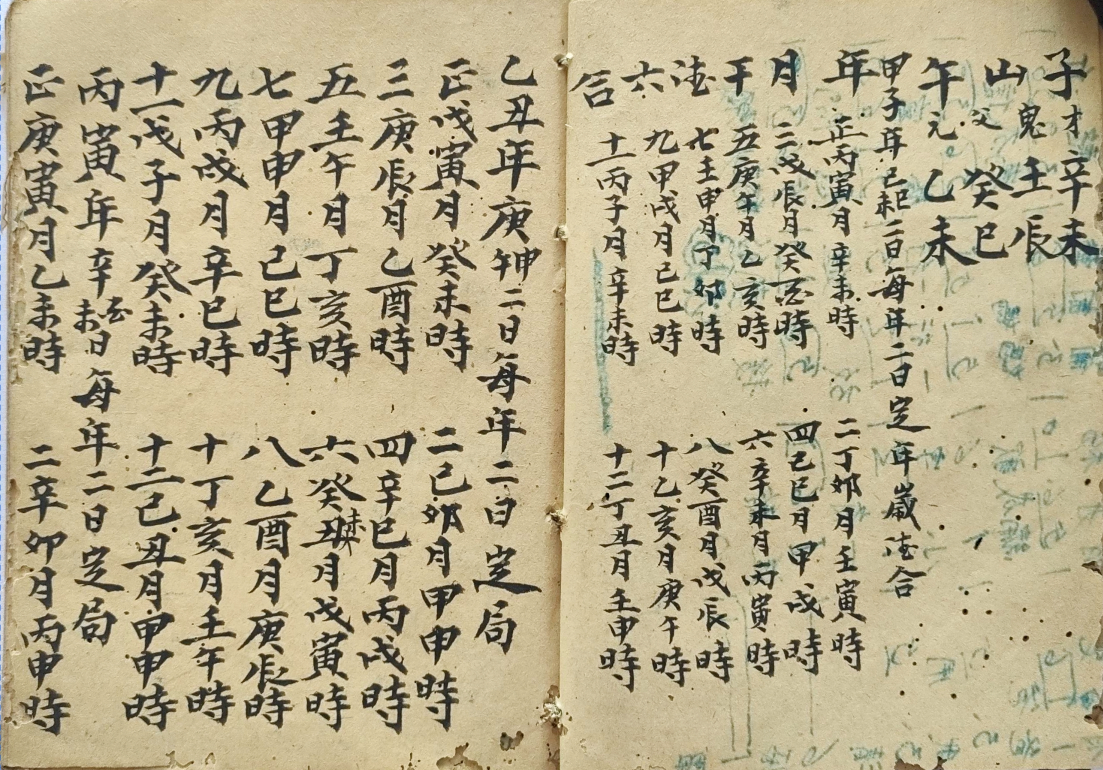 子才辛未
山鬼壬辰
父癸巳
午元乙未
甲子年己 二日每年二日定年歲法合
年正丙寅月辛未時 二丁卯月壬寅時
月三戊辰月癸 時 四己巳月甲戌時
干五庚午月乙亥時 六辛未月丙寅時
法七壬申月丁卯時 八癸酉月戊辰時
六九甲戌月己巳時 十乙亥月庚午時
合十一丙子月辛未時 十二丁丑月壬申時
乙丑年庚 二日每年二日定局
正戊寅月癸未時 二己卯月甲申時
三庚辰月乙酉時 四辛巳月丙戌時
五壬午月丁亥時 六癸 月戊寅時
七甲申月己巳時 八乙酉月庚辰時
九丙戌月辛巳時 十丁亥月壬午時
十一戊子月癸未時 十二己丑月甲申時
丙寅年辛 日每年二日定局
正庚寅月乙未時 二辛卯月丙申時